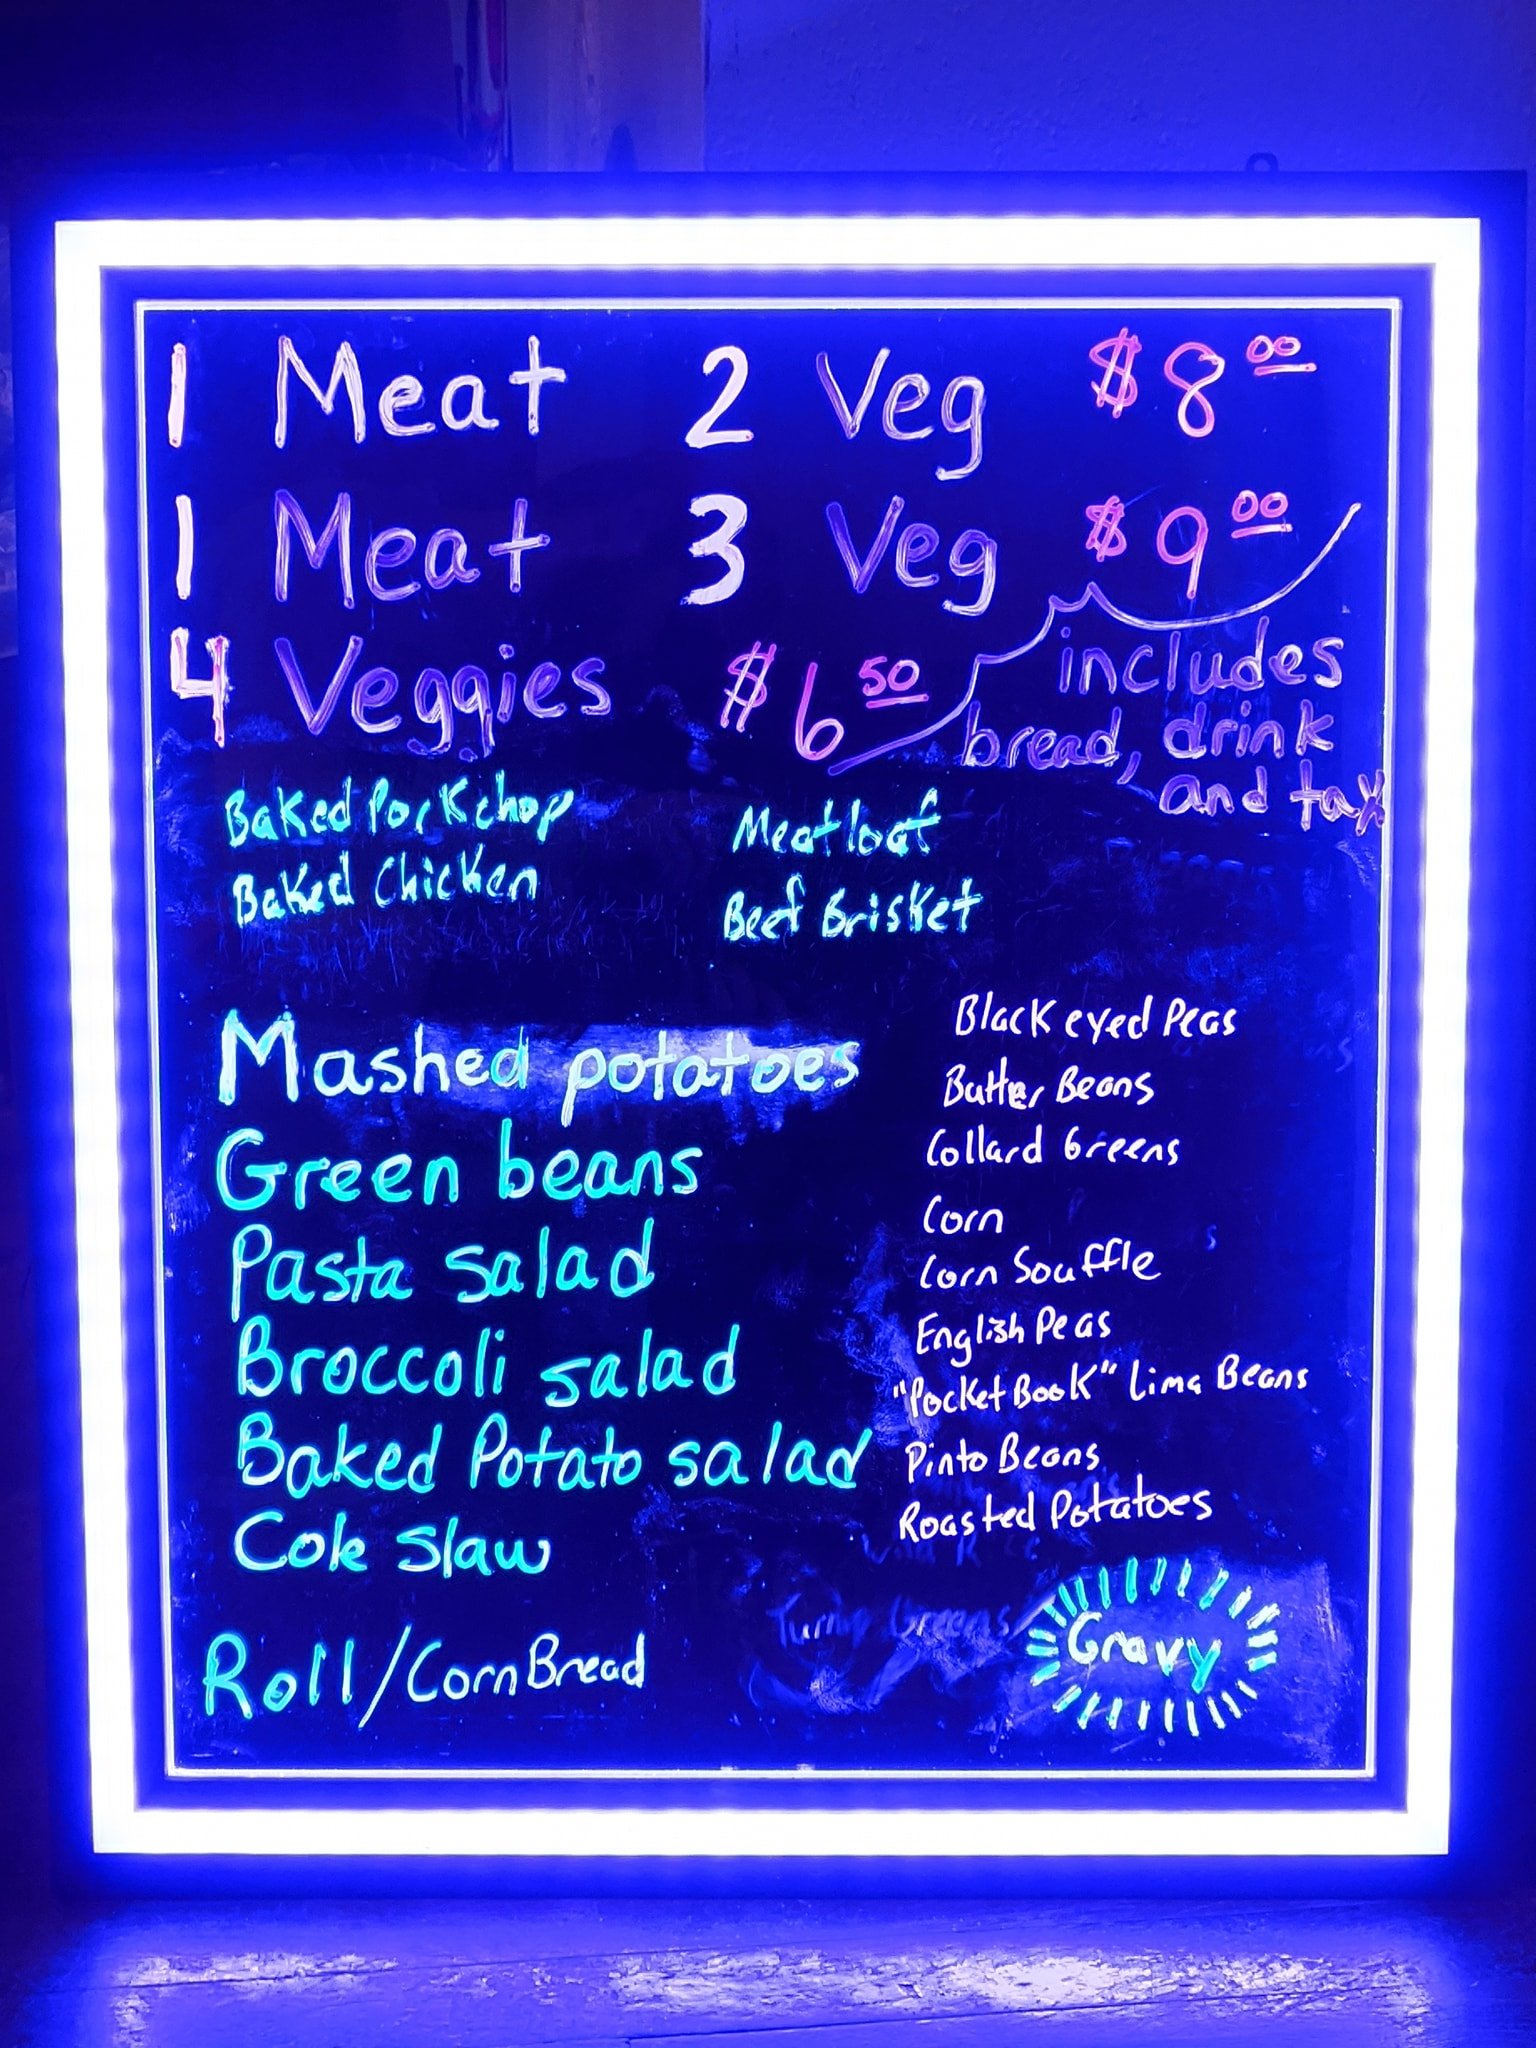 1 Meat 2 Veg $8.00
1 Meat 3 Veg $9.00
4 Veggies $6.50
includes
bread, drink
and tax
Baked Porkchop
Baked Chicken
Meatloaf
Beef Brisket
Mashed potatoes
Green beans
Pasta salad
Broccoli salad
Baked Potato salad
Cole slaw
Roll/CornBread
Black eyed Peas
Butter Beans
Collard Greens
Corn
Corn Souffle
English Peas
"PocketBook" Lima Beans
Pinto Beans
Roasted Potatoes
Turnip Greens
Gravy